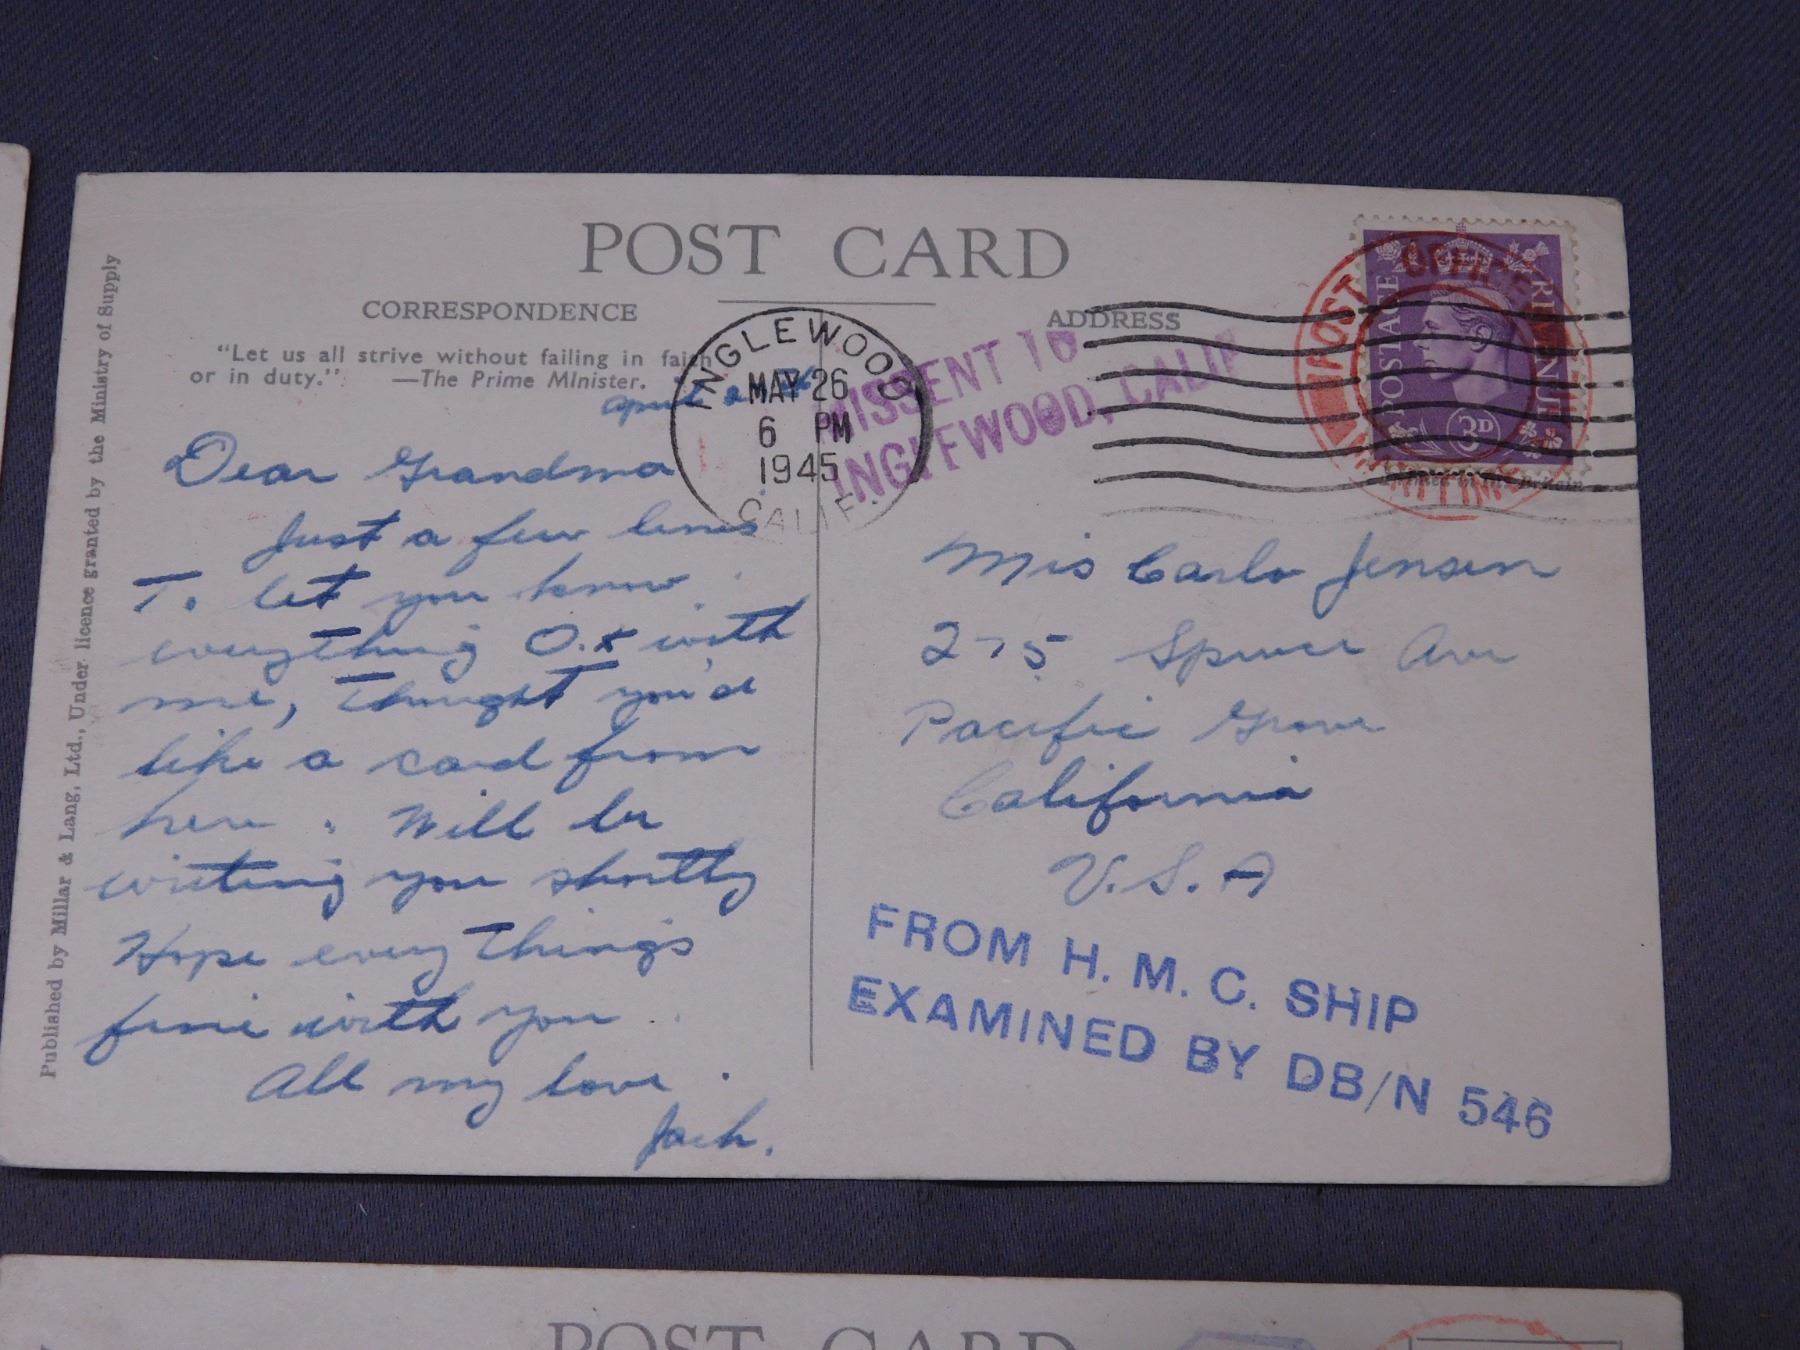 POST CARD
CORRESPONDENCE
ADDRESS
"Let us all strive without failing in faith
or in duty." —The Prime Minister.
Published by Millar & Lang, Ltd., Under licence granted by the Ministry of Supply
April
INGLEWOOD
MAY 26
6 PM
1945
CALIF.
MISSENT TO
INGLEWOOD, CALIF
POSTAGE REVENUE
3D
POST OFFICE
MARITIME
Dear Grandma
Just a few lines
To let you know
everything O.K with
me, Thought you'd
like a card from
here. Will be
writing you shortly
Hope every things
fine with you.
All my love.
Jack.
Mis Carlo Jensen
275 Spruce Ave
Pacific Grove
California
U.S.A
FROM H. M. C. SHIP
EXAMINED BY DB/N 546
POST CARD